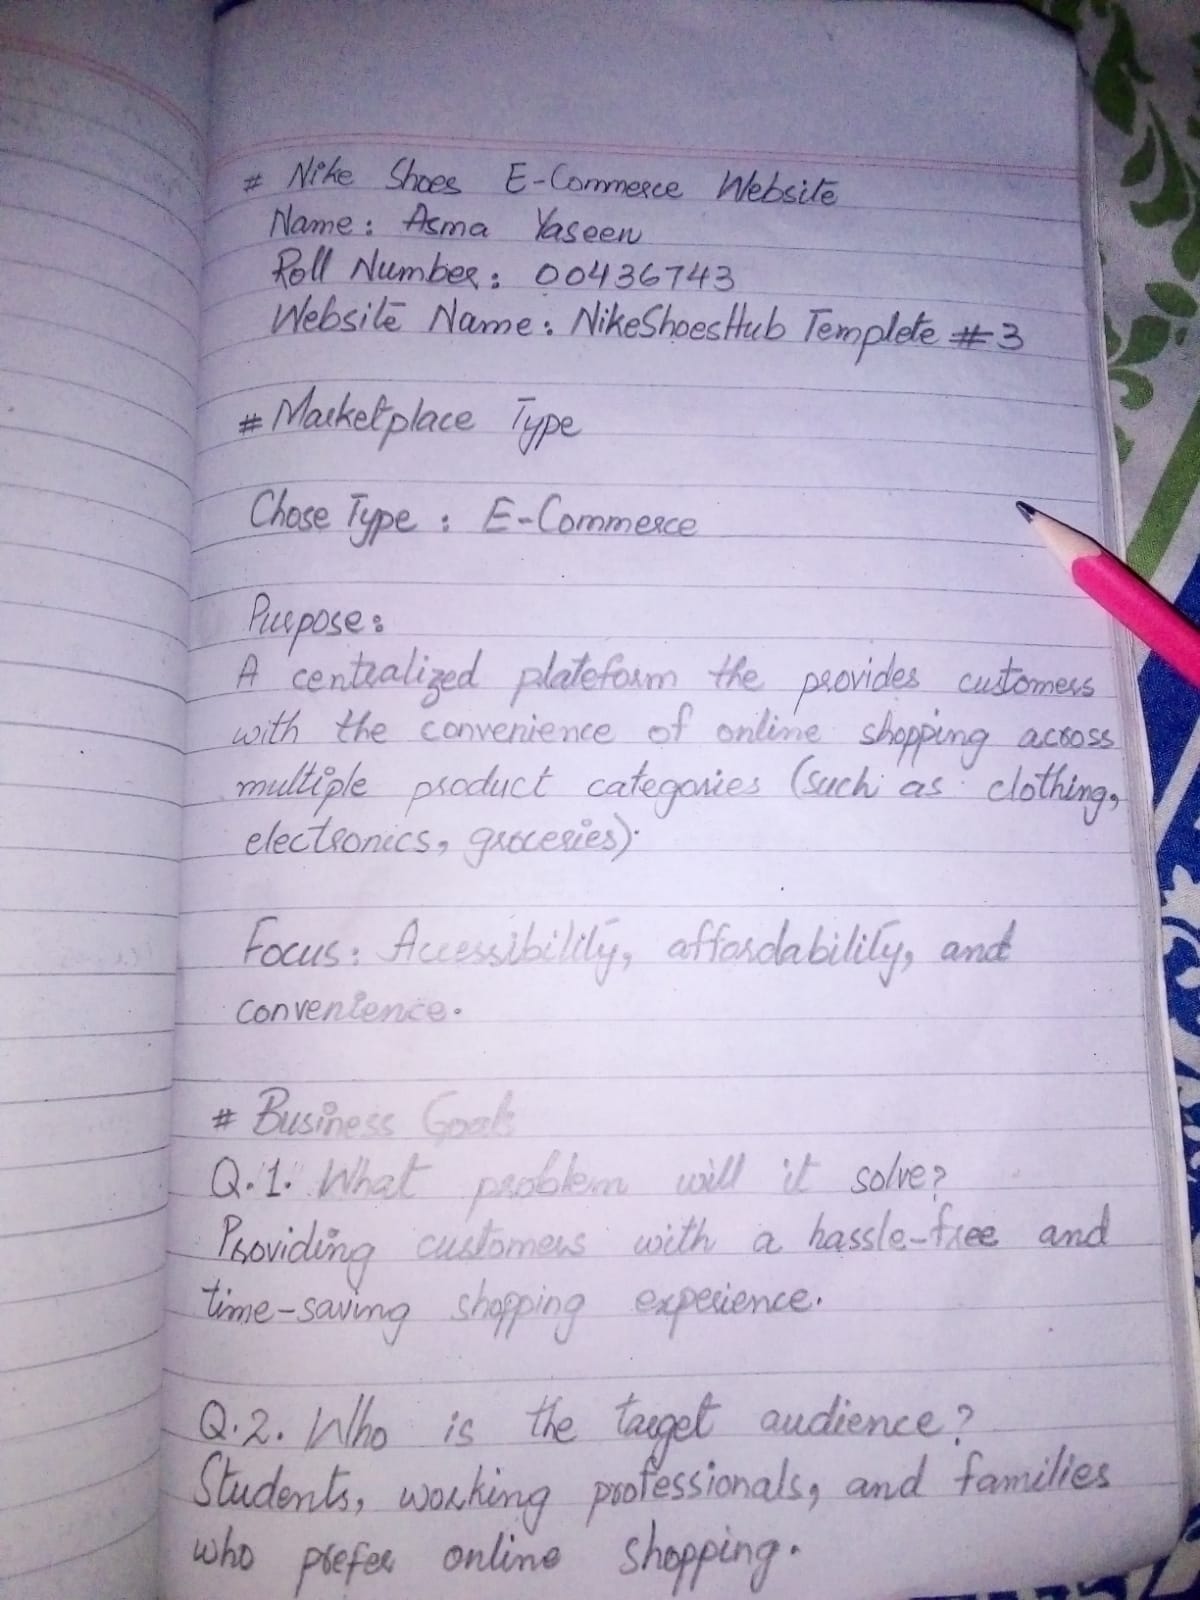 # Nike Shoes E-Commerce Website
Name: Asma Yaseen
Roll Number: 00436743
Website Name: NikeShoesHub Templete #3
# Marketplace Type
Chose Type: E-Commerce
Purpose:
A centralized plateform the provides customers
with the convenience of online shopping across
multiple product categories (such as clothing,
electronics, groceries).
Focus: Accessibility, affordability, and
convenience.
# Business Goals
Q.1. What problem will it solve?
Providing customers with a hassle-free and
time-saving shopping experience.
Q.2. Who is the target audience?
Students, working professionals, and families
who prefer online shopping.